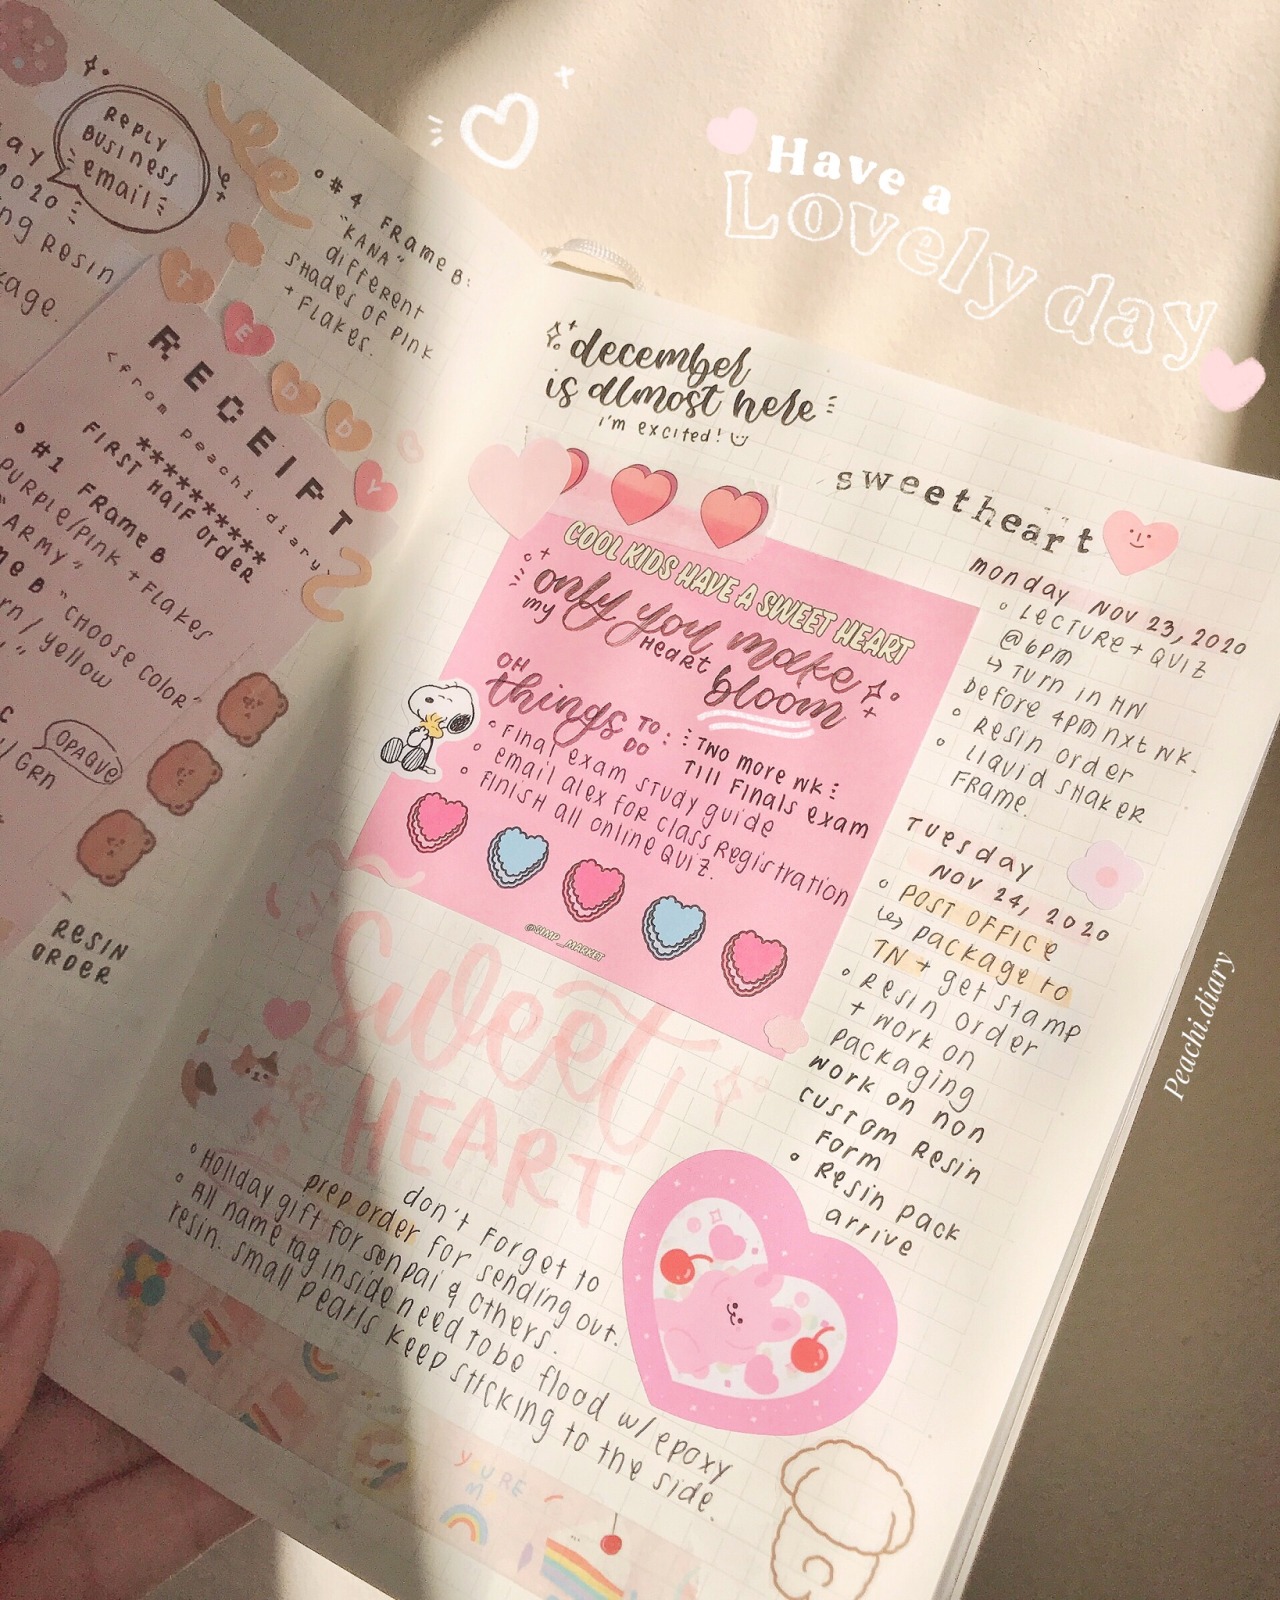 Have a
Lovely day
REPLY
BUSINESS
email
ay
2020
ng Resin
kage.
#4 Frame B:
"KANA"
different
SHades of PINK
+ Flakes.
TEDDY
RECEIPT
<from peachi.diary
**********
FIRST HalF order
#1 Frame B
PURPLE/PINK + Flakes
"ARMY"
me B "CHOOSE COLOR"
rn / Yellow
OPAQUE
/ GRN
RESIN
ORDER
december
is almost here
i'm excited!
sweetheart
COOL KIDS HAVE A SWEET HEART
only you make
my Heart bloom
OH
things TO DO:
TWO more WK
TIll FINALS exam
Final exam study guide
email alex for class registration
FINISH all online QUIZ.
@SIMP_MARKET
monday Nov 23, 2020
LECTURE + QUIZ
@6PM
↳ Turn in HW
before 4pm nxt wk.
Resin order
Liquid SHaker
Frame.
Tuesday
Nov 24, 2020
POST OFFICE
↳ package to
TN + get stamp
Resin order
+ work on
packaging
work on non
custom Resin
Form
Resin pack
arrive
Sweet
HEART
don't Forget to
prep order for sending out.
Holiday gift for senpai & others.
All name tag inside need to be flood w/ epoxy
resin. small pearls keep sticking to the side.
YOU'RE
Peachi.diary